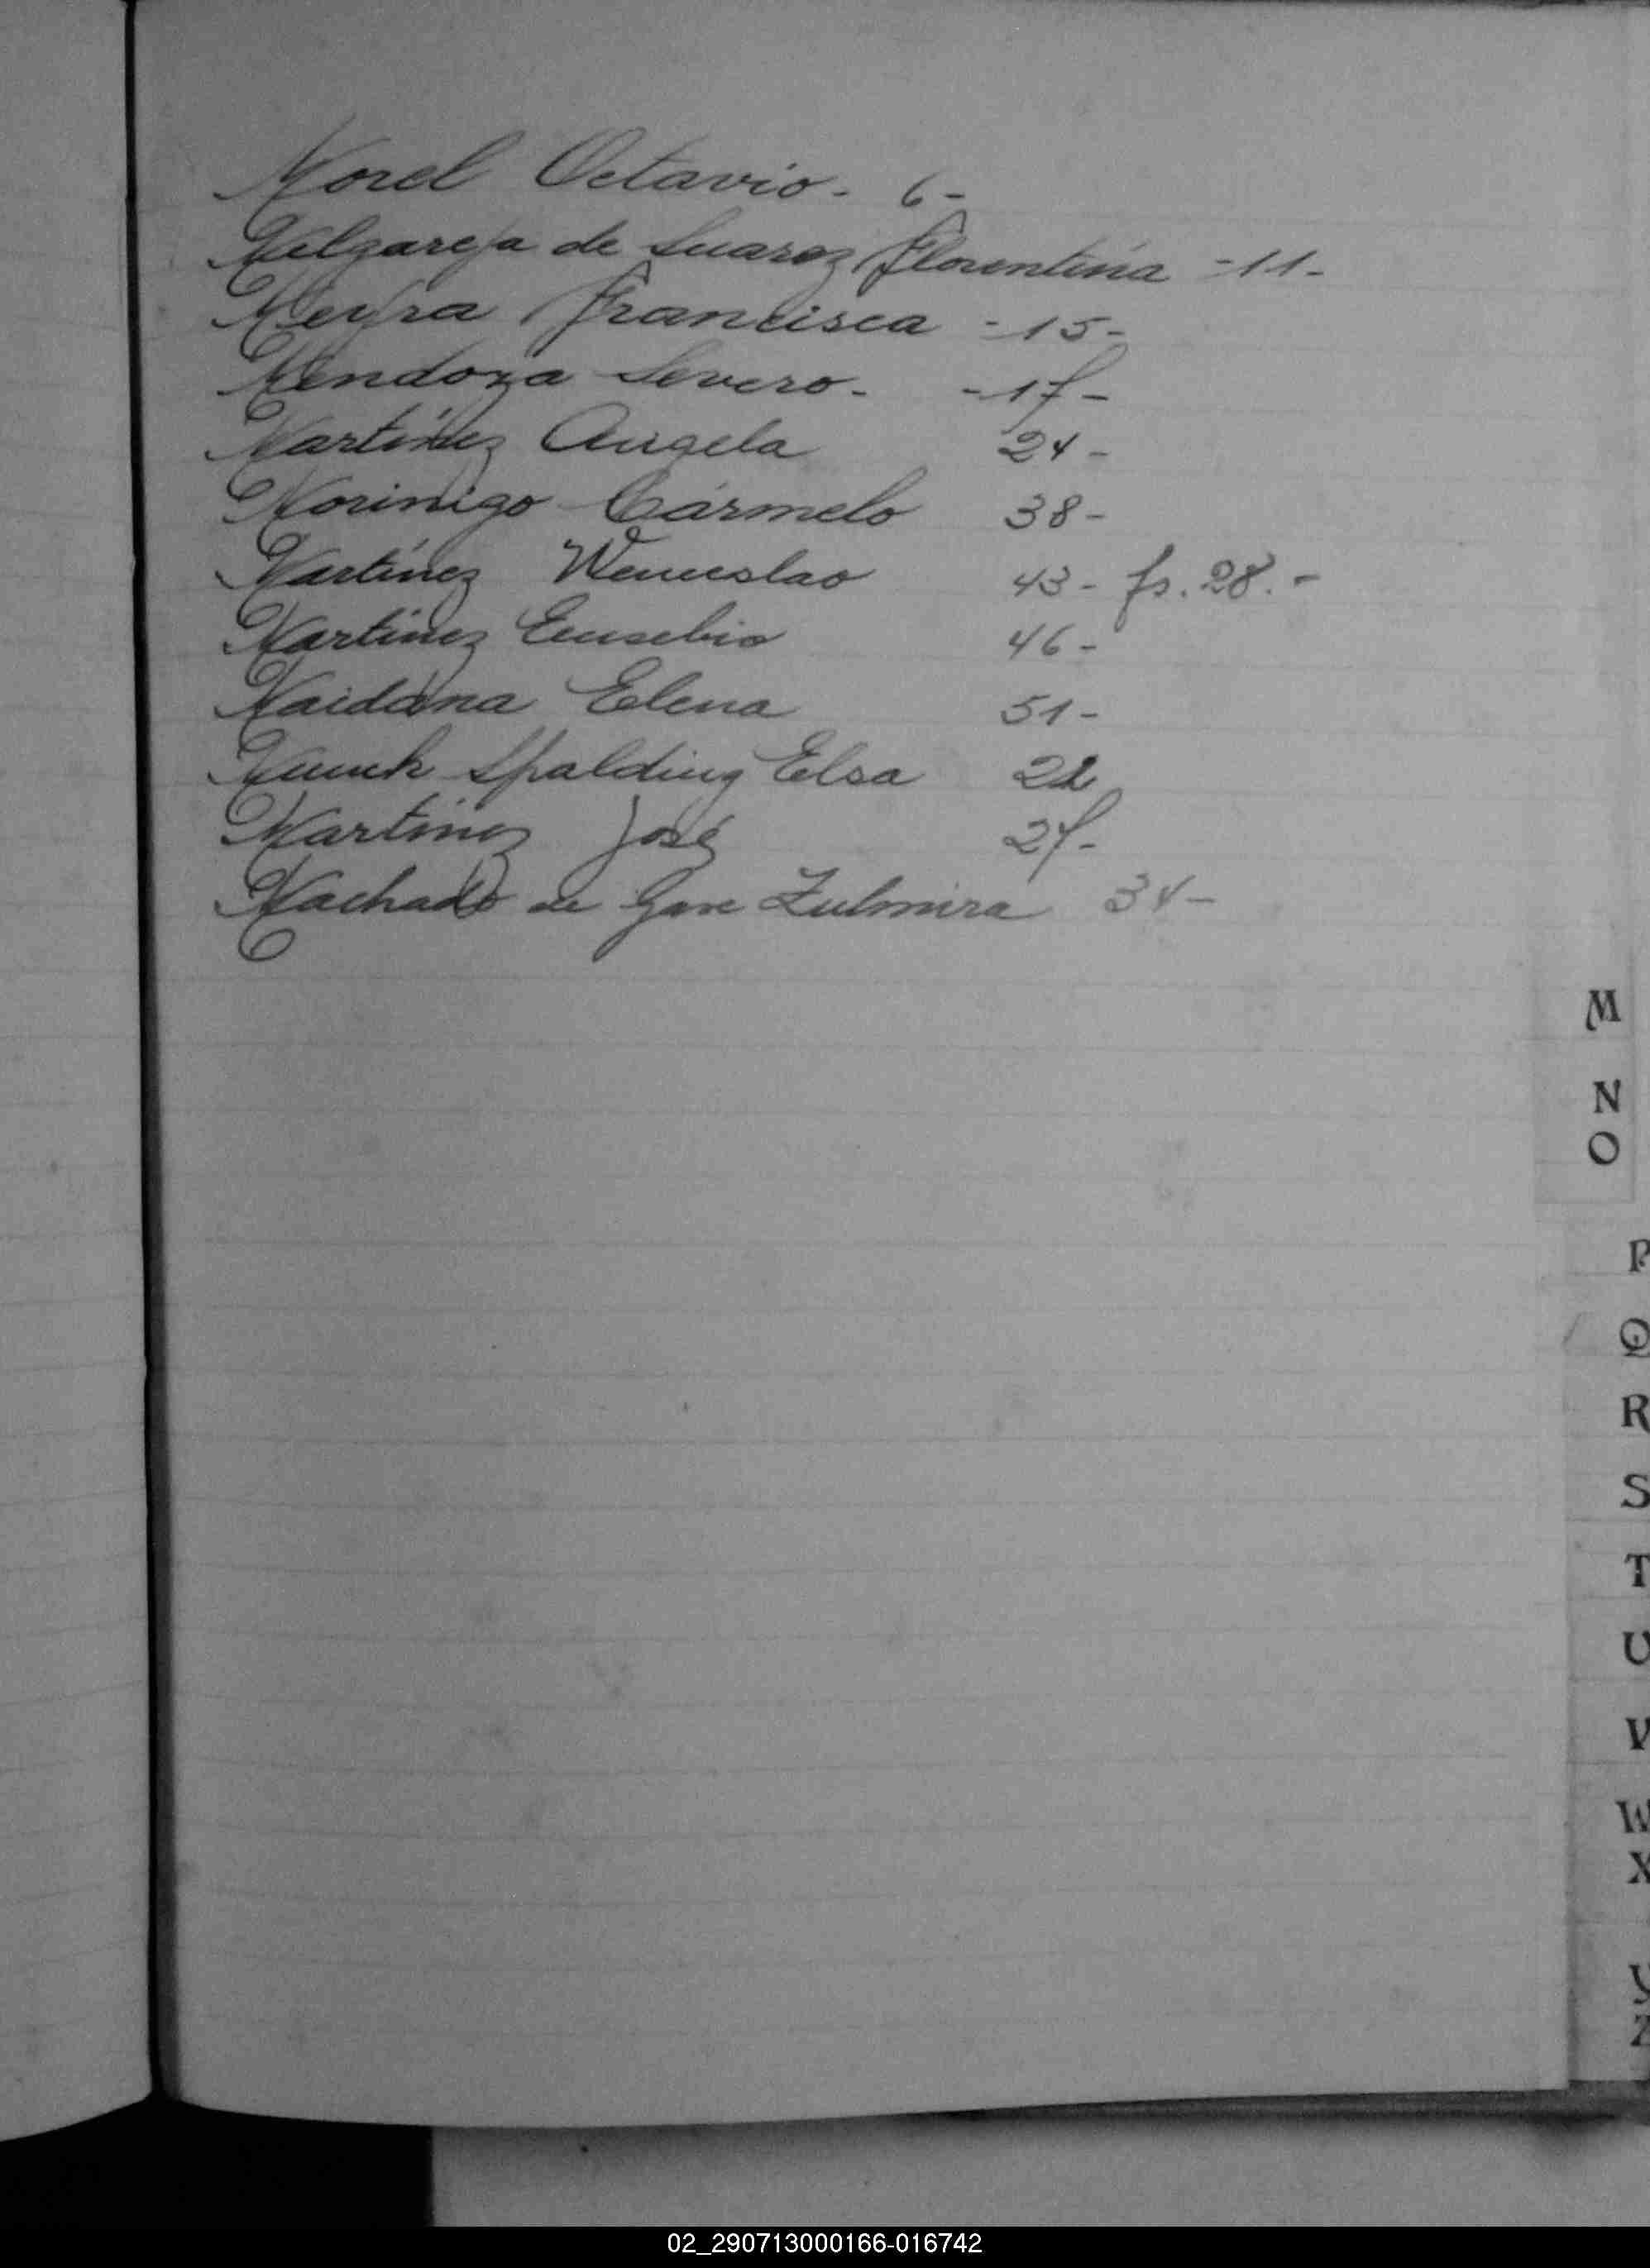 Morel Octavio - 6 -
Melgareja de Suarez Florentina - 11 -
Meyra Francisca - 15 -
Mendoza Severo - - 17 -
Martinez Angela 24 -
Morinigo Cármelo 38 -
Martinez Wenceslao 43 - fs. 28. -
Martinez Eusebio 46 -
Maidana Elena 51 -
Munch Spalding Elsa 22
Martinez José 27 -
Machado de Zulmira 34 -
M
N
O
P
Q
R
S
T
U
V
W
X
Y
Z
02_290713000166-016742